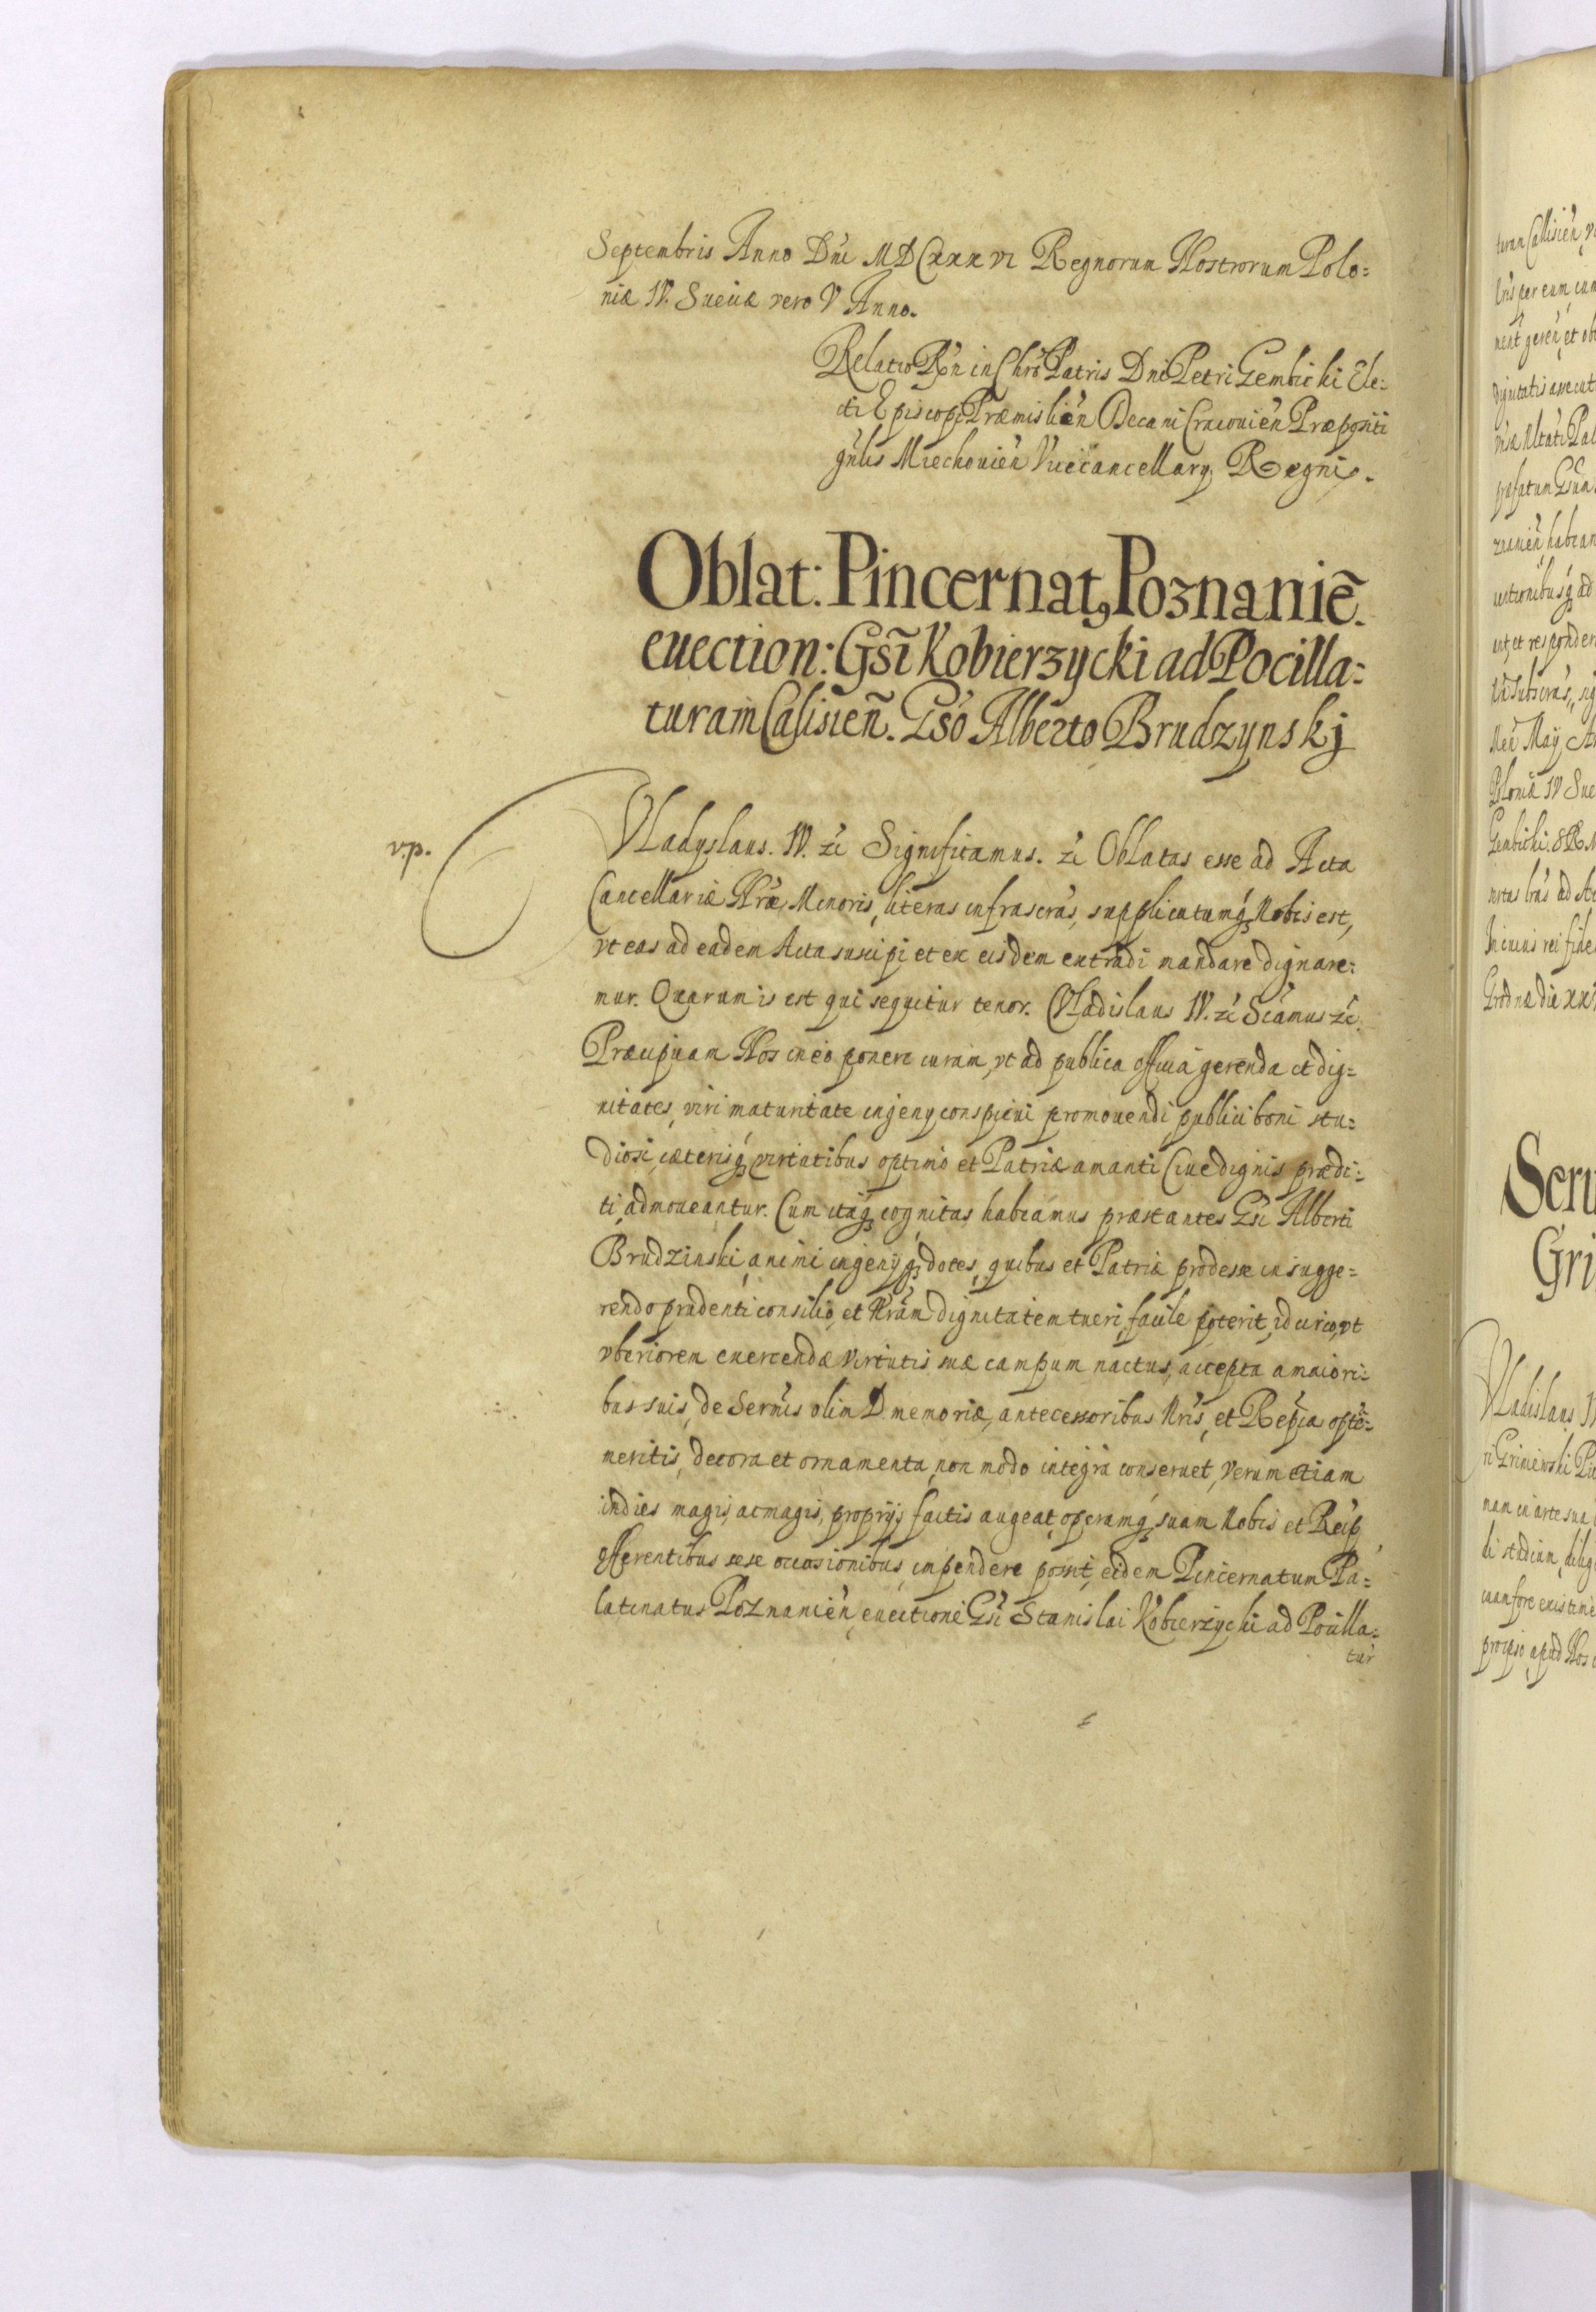 Septembris Anno Dni MDCxxxvi Regnorum Nostrorum Polo:
niæ IV. Sueciæ vero V Anno.
Relatio Rñ in Chrō Patris Dni Petri Gembicki Ele:
cti Episcopi Præmislień Decani Cracouień Præpositi
gnlis Miechouień Vicecancellarÿ Regni.
Oblat: Pincernat, Poznaniē.
euection: Gsī Kobierzycki ad Pocilla:
turam Calisieñ. Gsō Alberto Brudzynskj
v.p.
Vladyslaus. IV. zc Significamus. zc Oblatas esse ad Acta
Cancellariæ Nræ Minoris, literas infrascras, supplicatumq Nobis est,
vt eas ad eadem Acta suscipi et ex eisdem extradi mandare dignare:
mur. Quarum is est qui sequitur tenor. Vladislaus IV. zc Scamus zc.
Præcipuam Nos in eo ponere curam, vt ad publica officia gerenda et dig:
nitates, viri maturitate ingenÿ conspicui promouendi publici boni stu:
diosi, cæterisq virtutibus optimo et Patriæ amanti Ciue dignis prædi:
ti, admoueantur. Cum itaq cognitas habeamus præstantes Gsi Alberti
Brudzinski, animi ingenÿq dotes, quibus et Patriæ prodesse in sugge:
rendo prudenti consilio, et Nram dignitatem tueri, facile poterit, idcirco, vt
vberiorem exercendæ virtutis suæ campum nactus, accepta a maiori:
bus suis, de Sermis olim D. memoriæ, antecessoribus Nris, et Repca opte
meritis, decora et ornamenta, non modo integra conseruet, verum etiam
indies magis, ac magis, proprÿs factis augeat, operamq suam Nobis et Reip
offerentibus sese occasionibus, impendere possit, eidem Pincernatum Pa:
latinatus Poznanień, euectione Gsi Stanislai Kobierzycki ad Pocilla:
tur